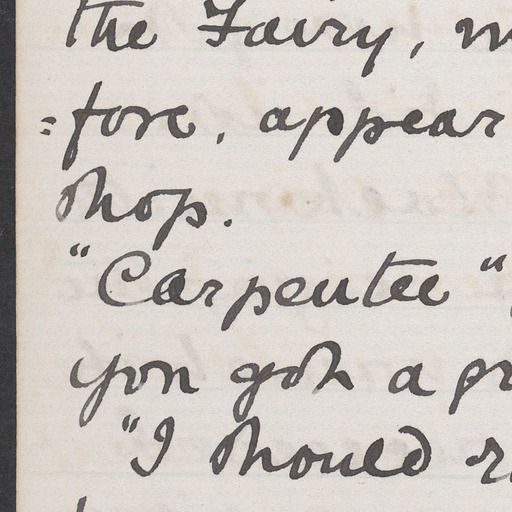 the Fairy,
=fore, appear
shop.
"Carpenter"
you got a
"I should